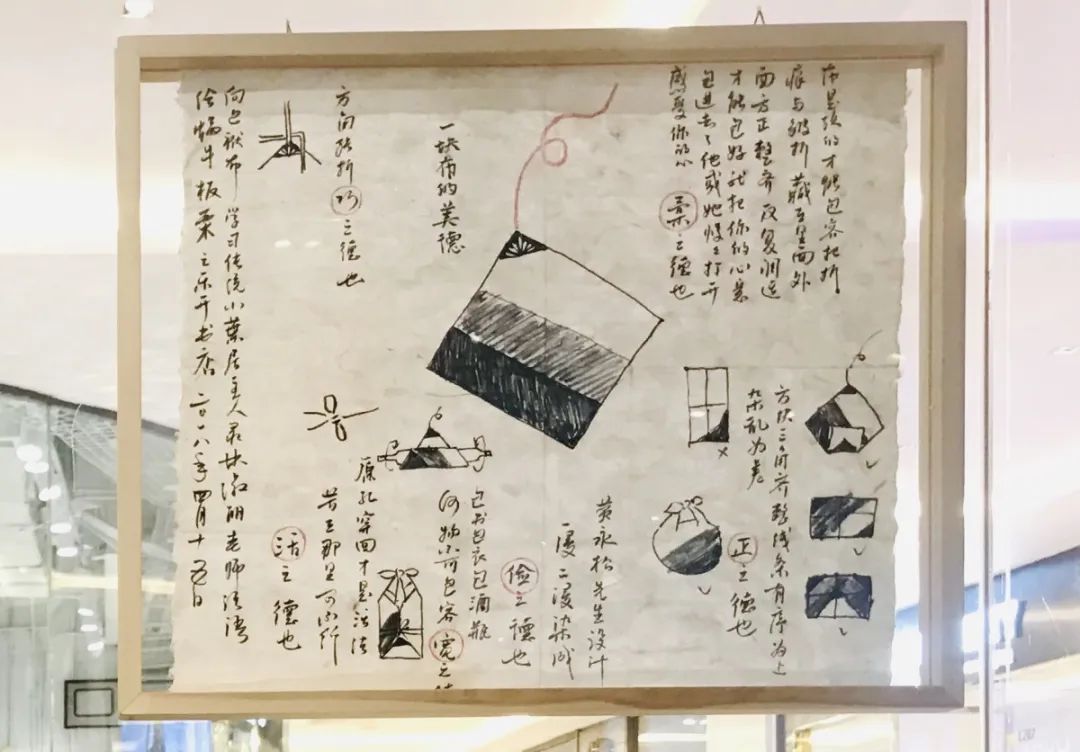 一块布的美德
布是软的才能包容把折
痕与皱折藏在里面外
面方正整齐反复调适
才能包好就把你的心意
包进去了他或她慢慢打开
感受你的心
柔之德也
方块三角齐整线条有序为上
杂乱为差
正之德也
黄永松先生设计
一浸二浸染成
俭之德也
包书包衣包酒瓶
何物不可包容宽之
原孔穿回才是活法
若在那里不可行
活之德也
方向转折巧之德也
向包袱布学习传统小叶居主人录林淑明老师法语
于蜗牛板栗之乐开书店二〇一八年四月十五日